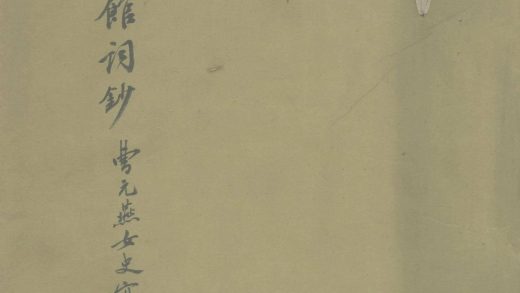 館詞鈔 曹元燕女史